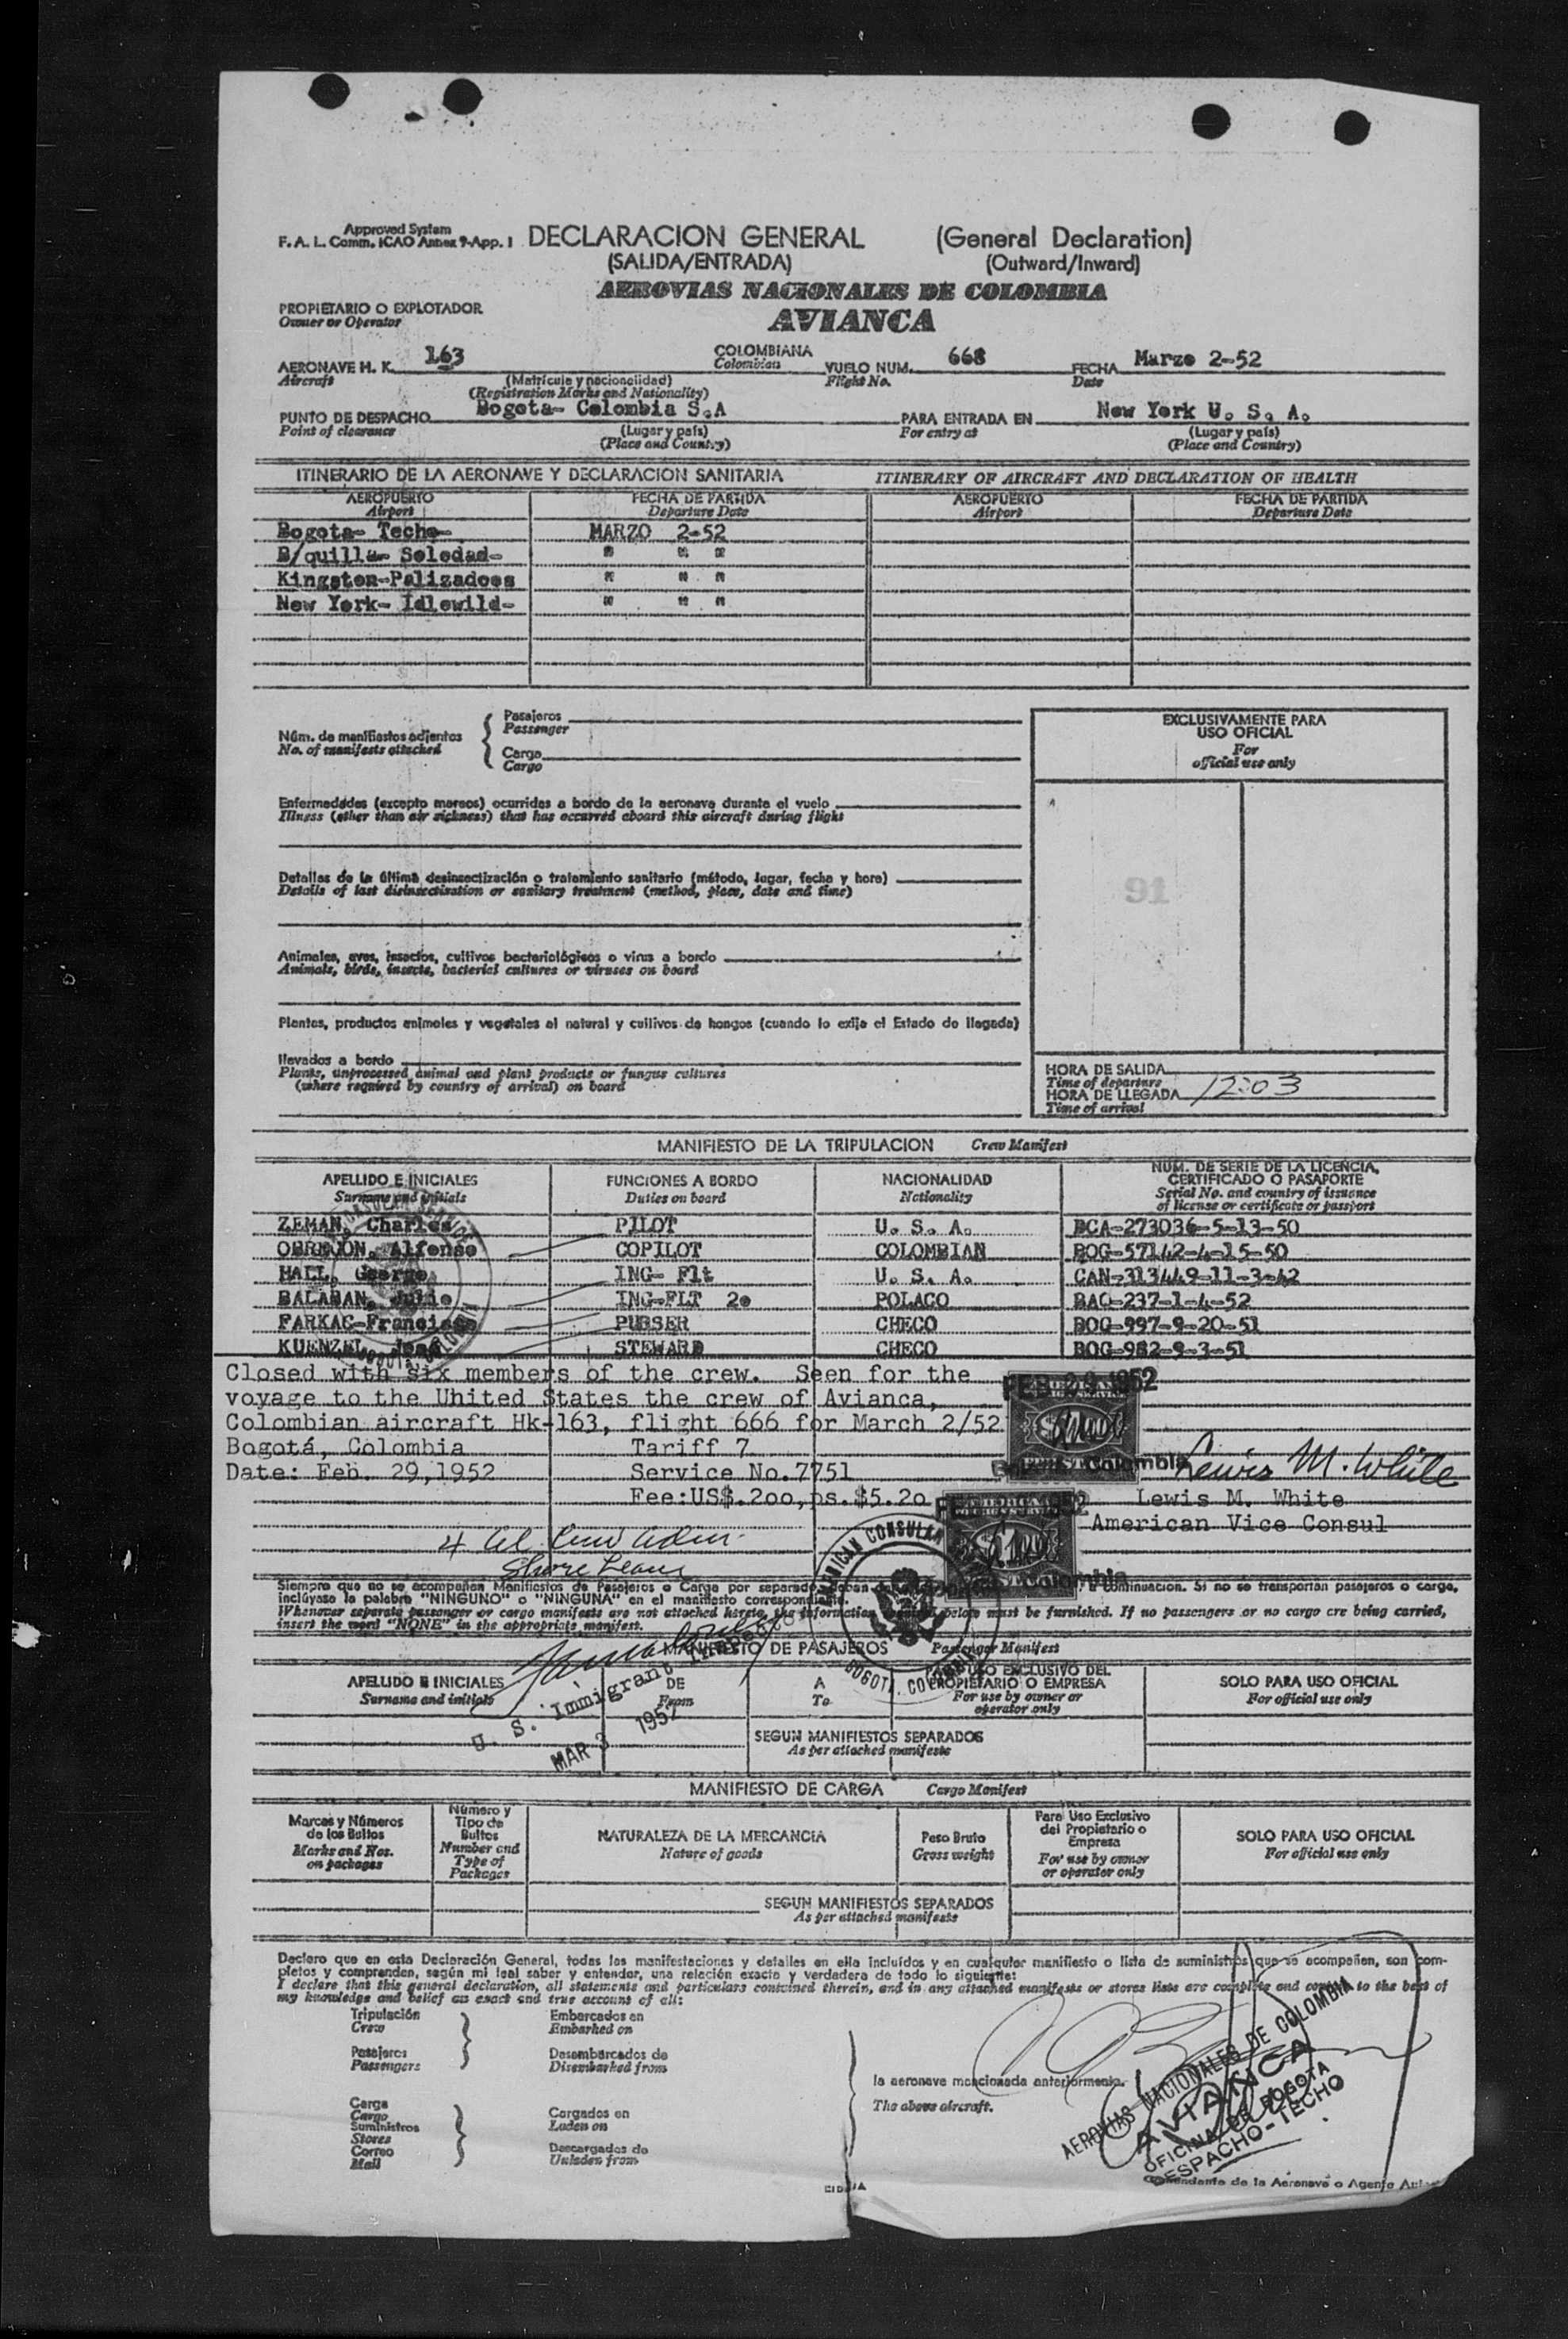 Approved System
F. A. L. Comm. ICAO Annex 9-App. 1 DECLARACION GENERAL (General Declaration)
(SALIDA/ENTRADA) (Outward/Inward)
AEROVIAS NACIONALES DE COLOMBIA
AVIANCA
PROPIETARIO O EXPLOTADOR
Owner or Operator
AERONAVE H. K. 163 COLOMBIANA VUELO NUM. 668 FECHA Marzo 2-52
Aircraft Colombian Flight No. Date
(Matrícula y nacionalidad)
(Registration Marks and Nationality)
PUNTO DE DESPACHO Bogota- Colombia S.A PARA ENTRADA EN New York U. S. A.
Point of clearance (Lugar y país) For entry at (Lugar y país)
(Place and Country) (Place and Country)
ITINERARIO DE LA AERONAVE Y DECLARACION SANITARIA ITINERARY OF AIRCRAFT AND DECLARATION OF HEALTH
AEROPUERTO FECHA DE PARTIDA AEROPUERTO FECHA DE PARTIDA
Airport Departure Date Airport Departure Date
Bogota- Techo- MARZO 2-52
B/quilla- Soledad- " " "
Kingston-Palizadoes " " "
New York- Idlewild- " " "
Núm. de manifiestos adjuntos
No. of manifests attached
Pasajeros
Passenger
Cargo
Cargo
EXCLUSIVAMENTE PARA
USO OFICIAL
For
official use only
Enfermedades (excepto mareos) ocurridas a bordo de la aeronave durante el vuelo
Illness (other than air sickness) that has occurred aboard this aircraft during flight
Detalles de la última desinsectización o tratamiento sanitario (método, lugar, fecha y hora)
Details of last disinsectisation or sanitary treatment (method, place, date and time)
91
Animales, aves, insectos, cultivos bacteriológicos o virus a bordo
Animals, birds, insects, bacterial cultures or viruses on board
Plantas, productos animales y vegetales al natural y cultivos de hongos (cuando lo exija el Estado de llegada)
llevados a bordo
Plants, unprocessed animal and plant products or fungus cultures
(where required by country of arrival) on board
HORA DE SALIDA
Time of departure
HORA DE LLEGADA 12:03
Time of arrival
MANIFIESTO DE LA TRIPULACION Crew Manifest
APELLIDO E INICIALES FUNCIONES A BORDO NACIONALIDAD NUM. DE SERIE DE LA LICENCIA, CERTIFICADO O PASAPORTE
Surname and initials Duties on board Nationality Serial No. and country of issuance of license or certificate or passport
ZEMAN, Charles PILOT U. S. A. BCA-273036-5-13-50
OBREGON, Alfonso COPILOT COLOMBIAN BOG-57142-4-15-50
HALL, George ING- Flt U. S. A. CAN-313449-11-3-42
BALABAN, Julio ING-FLT 2o POLACO BAC-237-1-4-52
FARKAC-Francisco PURSER CHECO BOG-997-9-20-51
KUENZEL, José STEWARD CHECO BOG-982-9-3-51
Closed with six members of the crew. Seen for the
voyage to the United States the crew of Avianca,
Colombian aircraft Hk-163, flight 666 for March 2/52
Bogotá, Colombia Tariff 7
Date: Feb. 29,1952 Service No.7751
Fee:US$.2oo,ps.$5.2o
FEB 29 1952
Colombia
Lewis M. White
Lewis M. White
American Vice Consul
Shore Leave
AMERICAN CONSULAR
BOGOTA, COLOMBIA
Siempre que no se acompañen Manifiestos de Pasajeros o Carga por separado, continuacion. Si no se transportan pasajeros o carga,
inclúyase la palabra "NINGUNO" o "NINGUNA" en el manifiesto correspondiente.
Whenever separate passenger or cargo manifests are not attached hereto, the information below must be furnished. If no passengers or no cargo are being carried,
insert the word "NONE" in the appropriate manifest.
MANIFIESTO DE PASAJEROS Passenger Manifest
APELLIDO E INICIALES DE A PARA USO EXCLUSIVO DEL PROPIETARIO O EMPRESA SOLO PARA USO OFICIAL
Surname and initials From To For use by owner or operator only For official use only
U. S. Immigrant Inspector
MAR 3 1952
SEGUN MANIFIESTOS SEPARADOS
As per attached manifests
MANIFIESTO DE CARGA Cargo Manifest
Marcas y Números de los Bultos Número y Tipo de Bultos NATURALEZA DE LA MERCANCIA Peso Bruto Para Uso Exclusivo del Propietario o Empresa SOLO PARA USO OFICIAL
Marks and Nos. on packages Number and Type of Packages Nature of goods Gross weight For use by owner or operator only For official use only
SEGUN MANIFIESTOS SEPARADOS
As per attached manifests
Declaro que en esta Declaración General, todas las manifestaciones y detalles en ella incluídos y en cualquier manifiesto o lista de suministros que se acompañen, son com-
pletos y comprenden, según mi leal saber y entender, una relación exacta y verdadera de todo lo siguiente:
I declare that this general declaration, all statements and particulars contained therein, and in any attached manifests or stores lists are complete and correct to the best of
my knowledge and belief an exact and true account of all:
Tripulación Embarcados en
Crew Embarked on
Pasajeros Desembarcados de
Passengers Disembarked from
la aeronave mencionada anteriormente.
The above aircraft.
Carga
Cargo Cargados en
Suministros Laden on
Stores
Correo Descargados de
Mail Unladen from
AEROVIAS NACIONALES DE COLOMBIA
AVIANCA
OFICINA DE BOGOTA
DESPACHO-TECHO
Comandante de la Aeronave o Agente